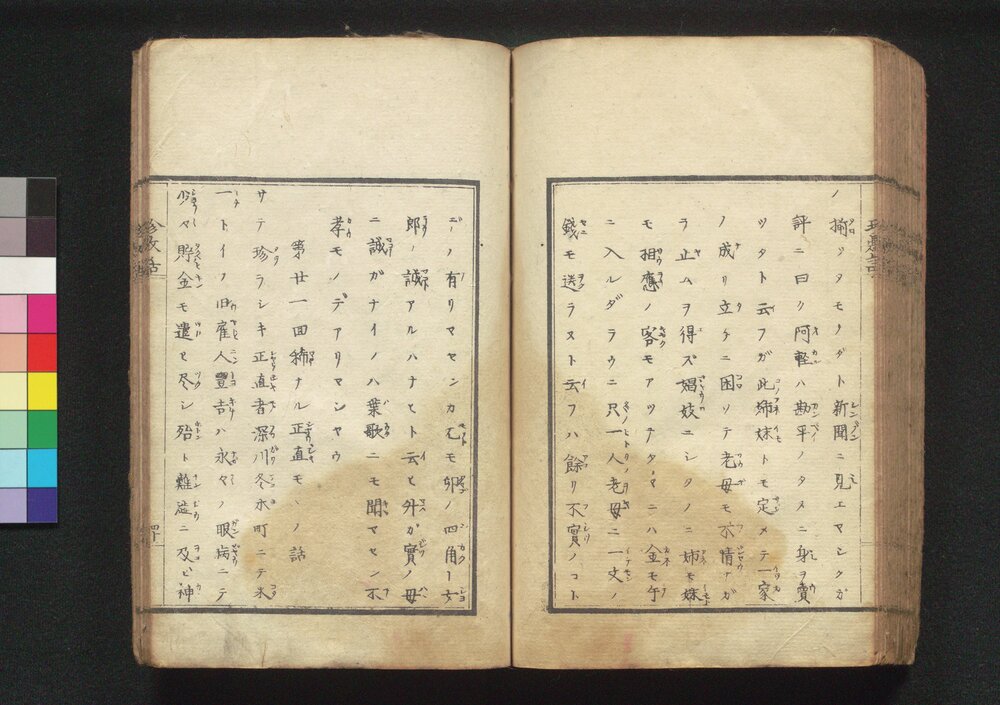 ノ揃ツタモノダト新聞ニ見エマシタガ
評ニ曰ク阿軽ハ勘平ノタメニ身ヲ賣
ツタト云フガ此姉妹トモ定メテ一家
ノ成リ立ケニ困ツテ老母モ不情ナガ
ラ止ムヲ得ズ娼妓ニシタノニ姉モ妹
モ相應ノ客モアツテタマニハ金モ手
ニ入ルダラウニ只一人ノ老母ニ一文ノ
錢モ送ラヌト云フハ餘リ不實ノコト
デハ有リマセンカ尤モ卵ノ四角ト女
郎ノ誠アルハナヒト云ヒ外ガ實ノ母
ニ誠ガナイノハ葉歌ニモ聞マセン不
孝モノデアリマシヤウ
第廿一回稀ナル正直モノノ話
サテ珍ラシキ正直者深川冬木町ニテ米
一トイフ旧雇人豐吉ハ永々ノ眼病ニテ
少々貯金モ遣ヒ尽シ殆ト難澁ニ及ビ神